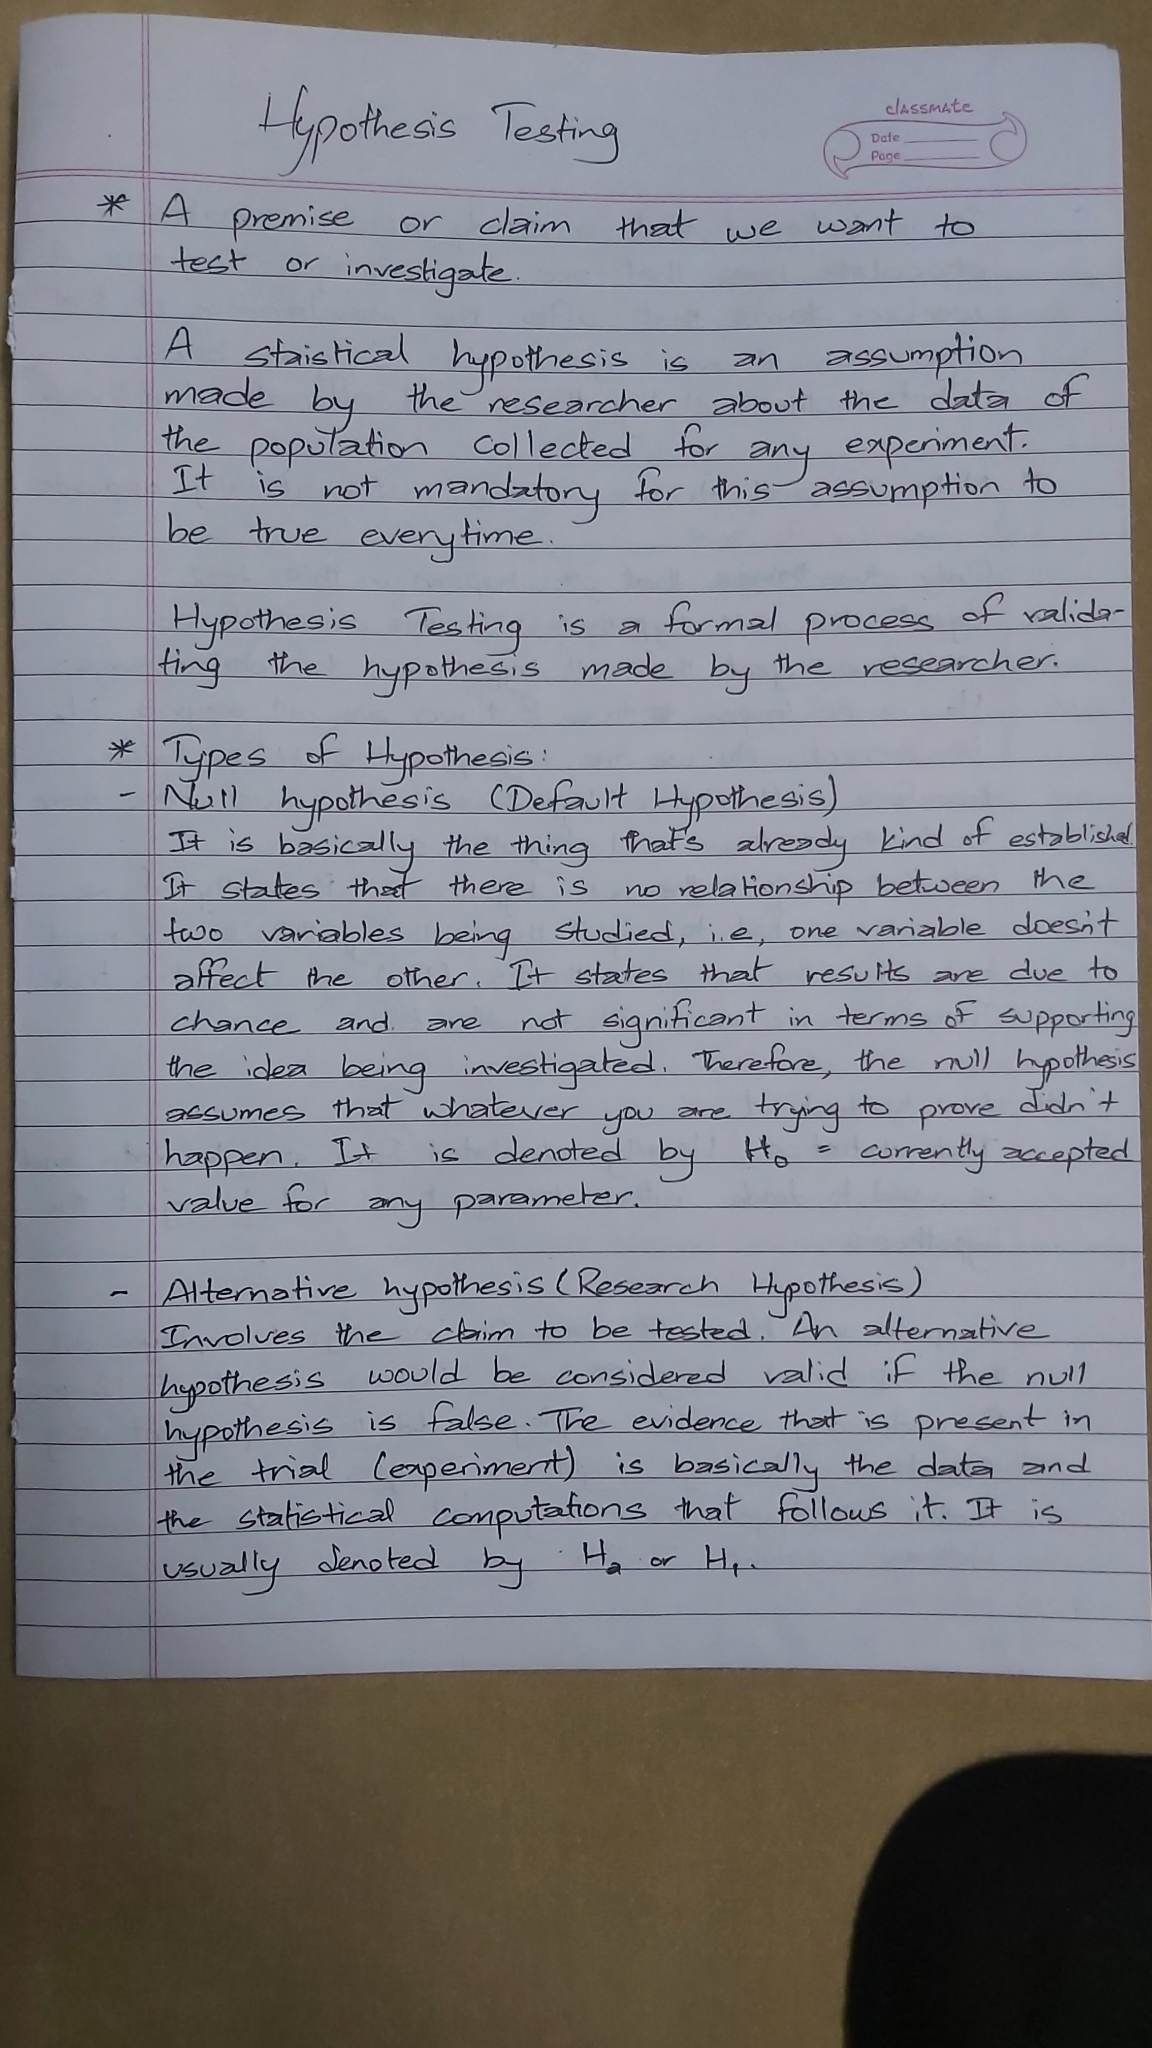 Hypothesis Testing
classmate
Date
Page
* A premise or claim that we want to
test or investigate.
A staistical hypothesis is an assumption
made by the researcher about the data of
the population collected for any experiment.
It is not mandatory for this assumption to
be true everytime.
Hypothesis Testing is a formal process of valida-
ting the hypothesis made by the researcher.
* Types of Hypothesis:
- Null hypothesis (Default Hypothesis)
It is basically the thing that's already kind of established.
It states that there is no relationship between the
two variables being studied, i.e, one variable doesn't
affect the other. It states that results are due to
chance and are not significant in terms of supporting
the idea being investigated. Therefore, the null hypothesis
assumes that whatever you are trying to prove didn't
happen. It is denoted by H₀ = currently accepted
value for any parameter.
- Alternative hypothesis (Research Hypothesis)
Involves the claim to be tested. An alternative
hypothesis would be considered valid if the null
hypothesis is false. The evidence that is present in
the trial (experiment) is basically the data and
the statistical computations that follows it. It is
usually denoted by Hₐ or H₁.